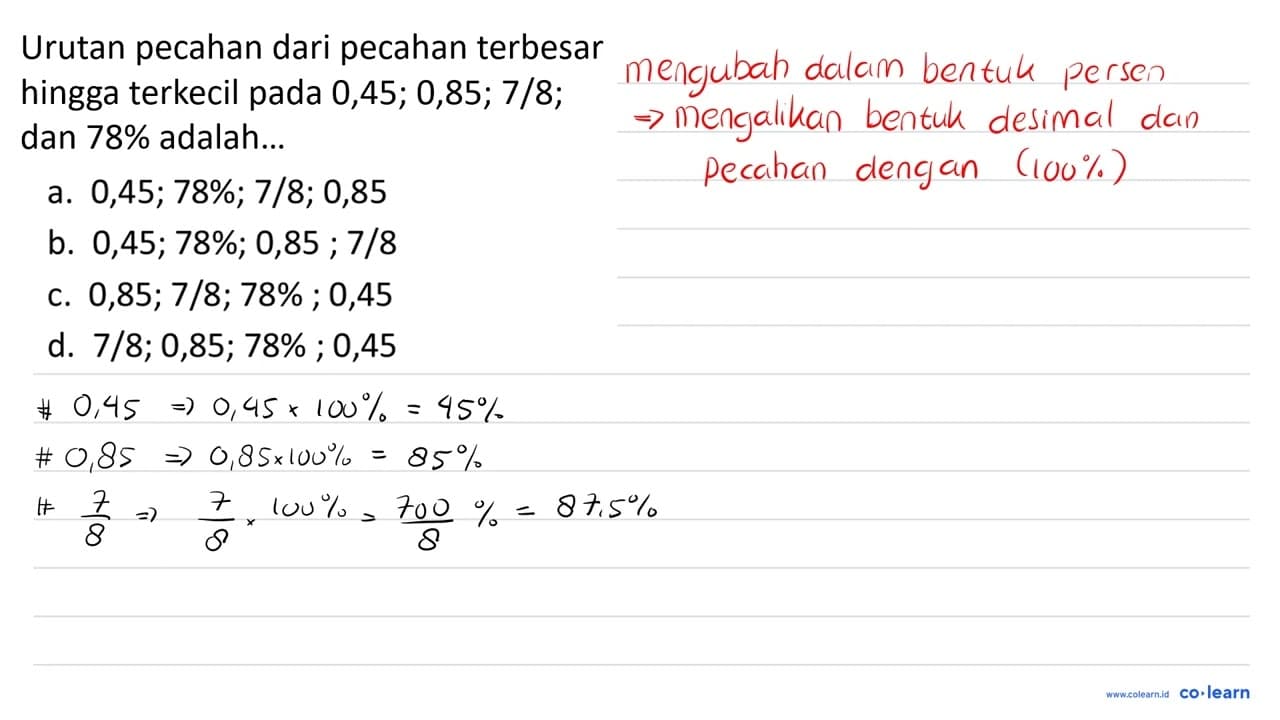 Urutan pecahan dari pecahan terbesar
hingga terkecil pada 0,45; 0,85; 7/8;
dan 78% adalah...
a. 0,45; 78%; 7/8; 0,85
b. 0,45; 78%; 0,85 ; 7/8
c. 0,85; 7/8; 78% ; 0,45
d. 7/8; 0,85; 78% ; 0,45
mengubah dalam bentuk persen
=> mengalikan bentuk desimal dan
pecahan dengan (100%)
# 0,45 => 0,45 × 100% = 45%
# 0,85 => 0,85×100% = 85%
# 7/8 => 7/8 × 100% = 700/8 % = 87,5%
www.colearn.id co·learn